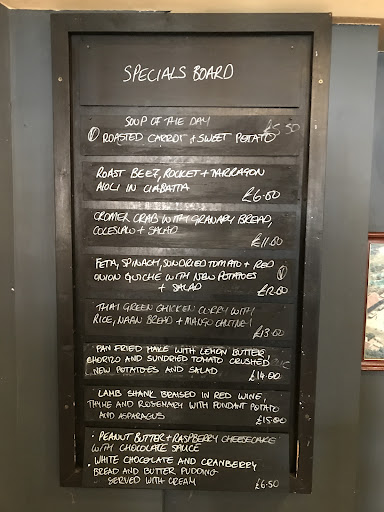 SPECIALS BOARD
SOUP OF THE DAY
Ⓥ ROASTED CARROT + SWEET POTATO £5.50
ROAST BEEF, ROCKET + TARRAGON
AIOLI IN CIABATTA
£6.60
CROMER CRAB WITH GRANARY BREAD,
COLESLAW + SALAD
£11.80
FETA, SPINACH, SUNDRIED TOMATO + RED
ONION QUICHE WITH NEW POTATOES Ⓥ
+ SALAD
£12.00
THAI GREEN CHICKEN CURRY WITH
RICE, NAAN BREAD + MANGO CHUTNEY
£13.00
PAN FRIED HAKE WITH LEMON BUTTER
CHORIZO AND SUNDRIED TOMATO CRUSHED
NEW POTATOES AND SALAD
£14.00
LAMB SHANK BRAISED IN RED WINE,
THYME AND ROSEMARY WITH FONDANT POTATO
AND ASPARAGUS
£15.00
· PEANUT BUTTER + RASPBERRY CHEESECAKE
WITH CHOCOLATE SAUCE
· WHITE CHOCOLATE AND CRANBERRY
BREAD AND BUTTER PUDDING
SERVED WITH CREAM
£6.50